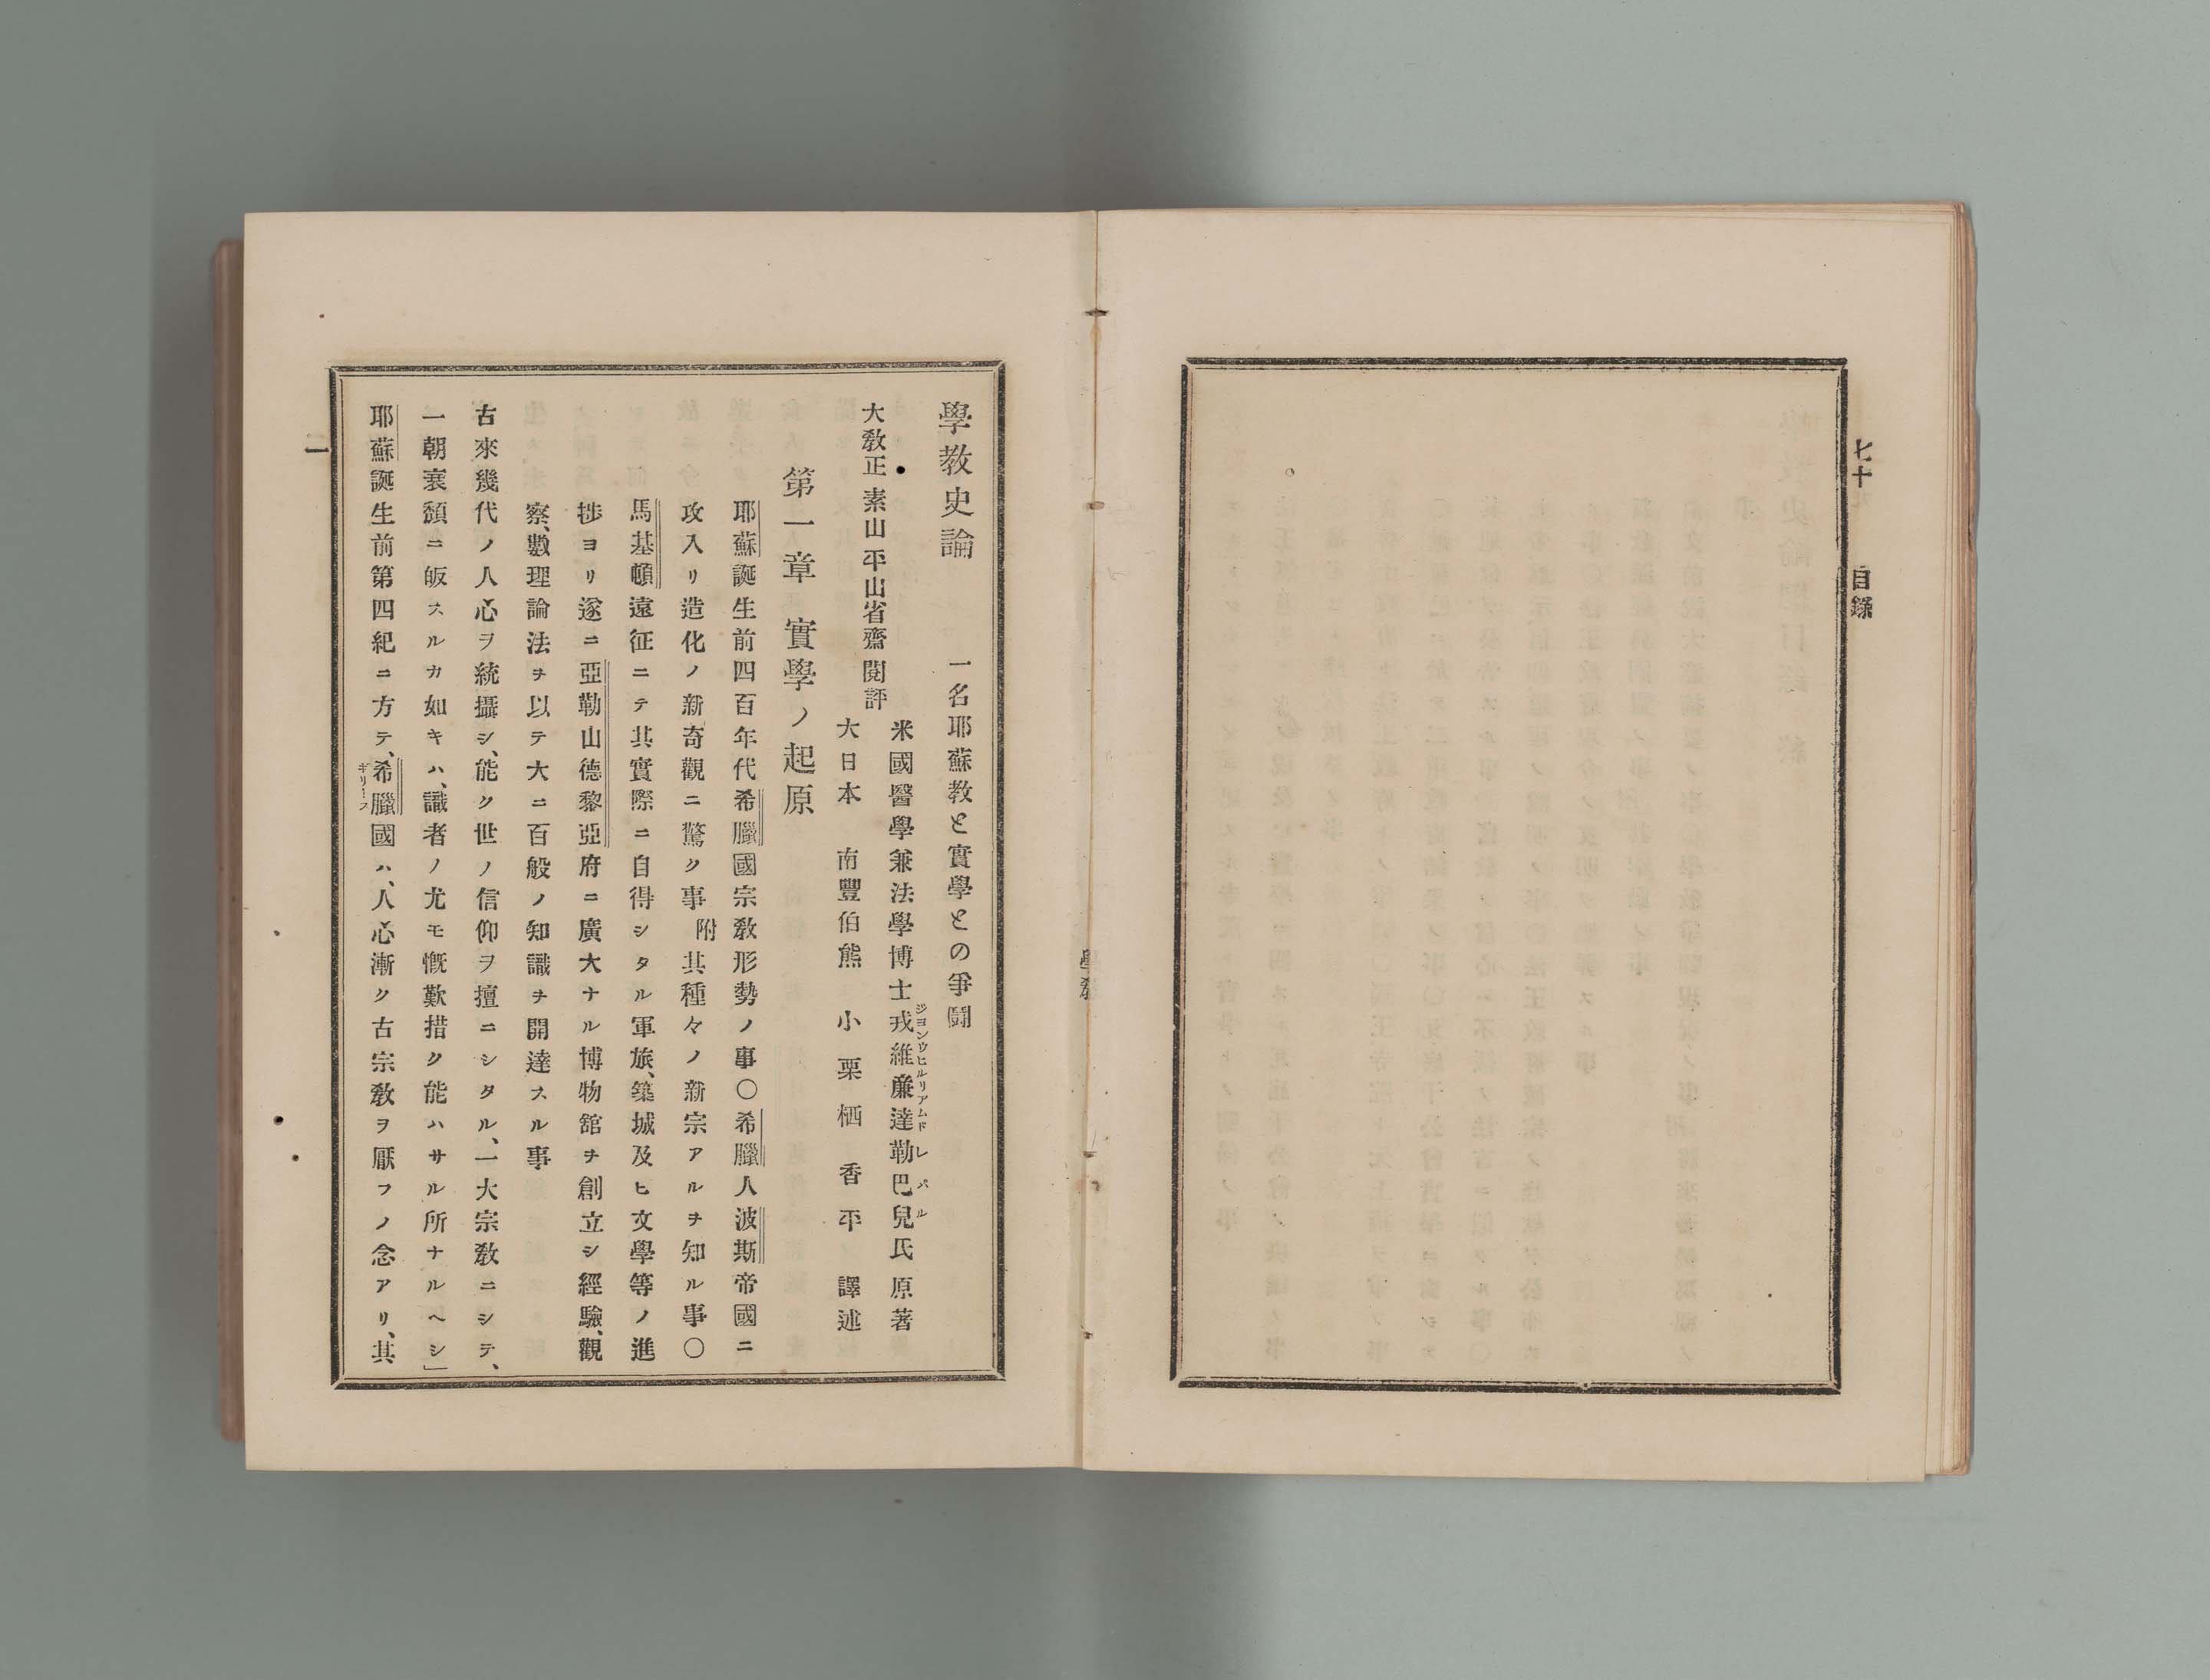 七十
目錄
學教
學教史論 一名耶蘇教と實學との爭鬪
米國醫學兼法學博士戎維廉達勒巴兒氏 原著
ジヨンウヒルリアムドレパル
大教正 素山平山省齋 閱評
大日本 南豐伯熊 小栗栖香平 譯述
第一章 實學ノ起原
耶蘇誕生前四百年代希臘國宗敎形勢ノ事〇希臘人波斯帝國ニ
攻入リ造化ノ新奇觀ニ驚ク事 附 其種々ノ新宗アルヲ知ル事〇
馬基頓遠征ニテ其實際ニ自得シタル軍旅、築城及ヒ文學等ノ進
捗ヨリ遂ニ亞勒山德黎亞府ニ廣大ナル博物舘ヲ創立シ經驗、觀
察、數理論法ヲ以テ大ニ百般ノ知識ヲ開達スル事
古來幾代ノ人心ヲ統攝シ、能ク世ノ信仰ヲ擅ニシタル、一大宗敎ニシテ、
一朝衰頽ニ皈スルカ如キハ、識者ノ尤モ慨歎措ク能ハサル所ナルヘシ」
耶蘇誕生前第四紀ニ方テ、希臘國ハ、人心漸ク古宗敎ヲ厭フノ念アリ、其
ギリース
一